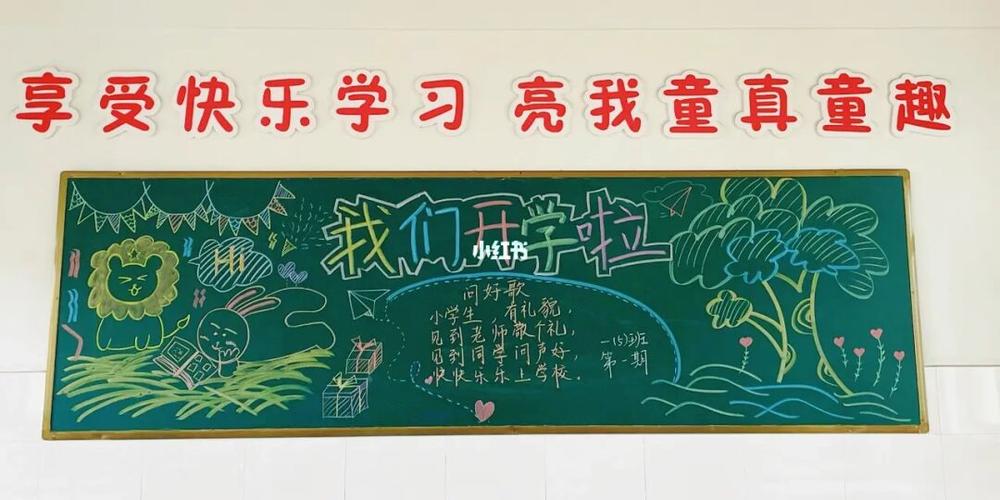 享受快乐学习 亮我童真童趣
我们开学啦
小红书
Hi
问好歌
小学生,有礼貌,
见到老师敬个礼,
见到同学问声好,
快快乐乐上学校。
一(5)班
第一期